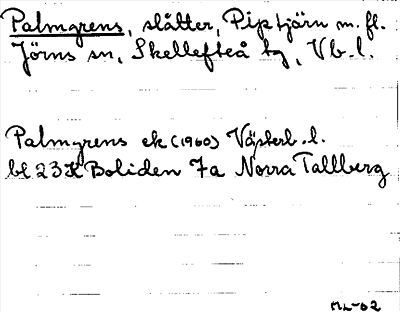 Palmgrens, slåtter, Piptjärn m. fl.
Jörns sn, Skellefteå tg, Vb. l.
Palmgrens ek (1960) Västerb. l.
bl 23K Boliden 7a Norra Tallberg
ML-62